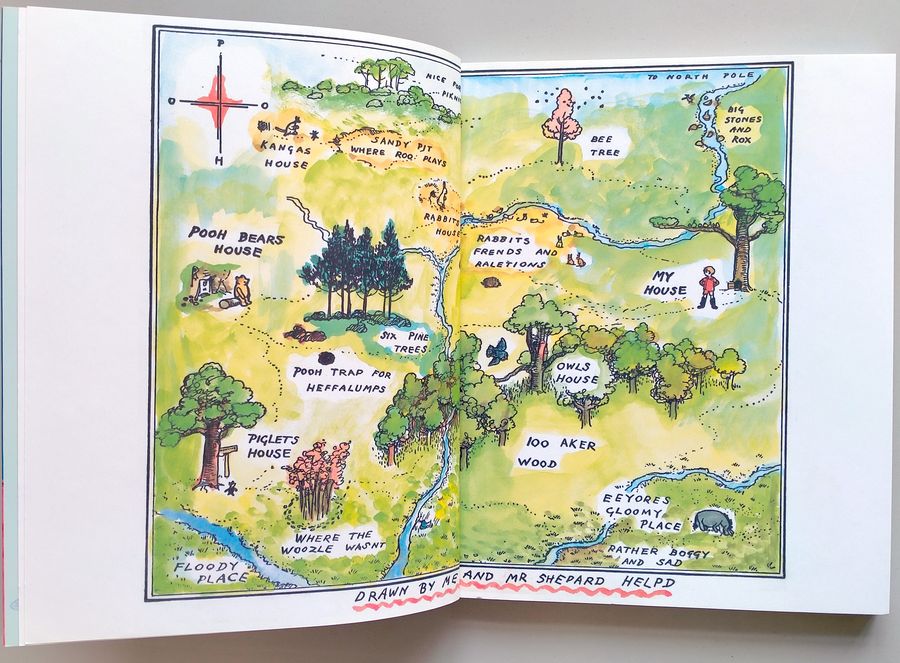 P
O O
H
NICE FOR
PIKNI
TO NORTH POLE
BIG
STONES
AND
ROX
BEE
TREE
KANGAS
HOUSE
SANDY PIT
WHERE ROO PLAYS
RABBITS
HOUSE
POOH BEARS
HOUSE
RABBITS
FRENDS AND
RALETIONS
MY
HOUSE
SIX PINE
TREES
POOH TRAP FOR
HEFFALUMPS
OWLS
HOUSE
PIGLETS
HOUSE
100 AKER
WOOD
WHERE THE
WOOZLE WASNT
FLOODY
PLACE
EEYORES
GLOOMY
PLACE
RATHER BOGGY
AND SAD
DRAWN BY ME AND MR SHEPARD HELPD